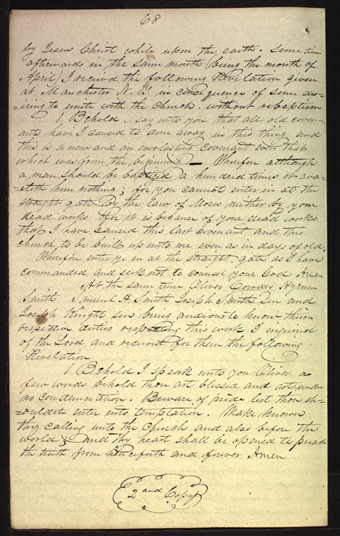 68
by Jesus Christ while upon the earth. Some time
afterwards in the same month being the month of
April, I received the following Revelation given
at Manchester N. Y. in consequence of some des-
iring to unite with the Church without rebaptism
1 Behold, I say unto you that all old coven-
ants have I caused to done away in this thing, and
this is a new and an everlasting covenant even that
which was from the beginning — Wherefore although
a man should be baptized a hundred times it ava-
ileth him nothing; for you cannot enter in at the
straight gate by the law of Moses neither by your
dead works for it is because of your dead works
that I have caused this last covenant and this
church to be built up unto me even as in days of old.
Wherefore enter ye in at the straight gate as I have
commanded and seek not to counsel your God Amen
At the same time Oliver Cowdery Hyrum
Smith Samuel H. Smith Joseph Smith Sen and
Joseph Knight sen being anxious to know their
respective duties respecting this work I inquired
of the Lord and received for them the following
Revelation
1 Behold I speak unto you Oliver a
few words behold thou art blessed and art under
no condemnation. Beware of pride lest thou sh-
ouldest enter into temptation. Make known
thy calling unto the Church and also before the
world; and thy heart shall be opened to preach
the truth from henceforth and forever Amen
2nd Copy